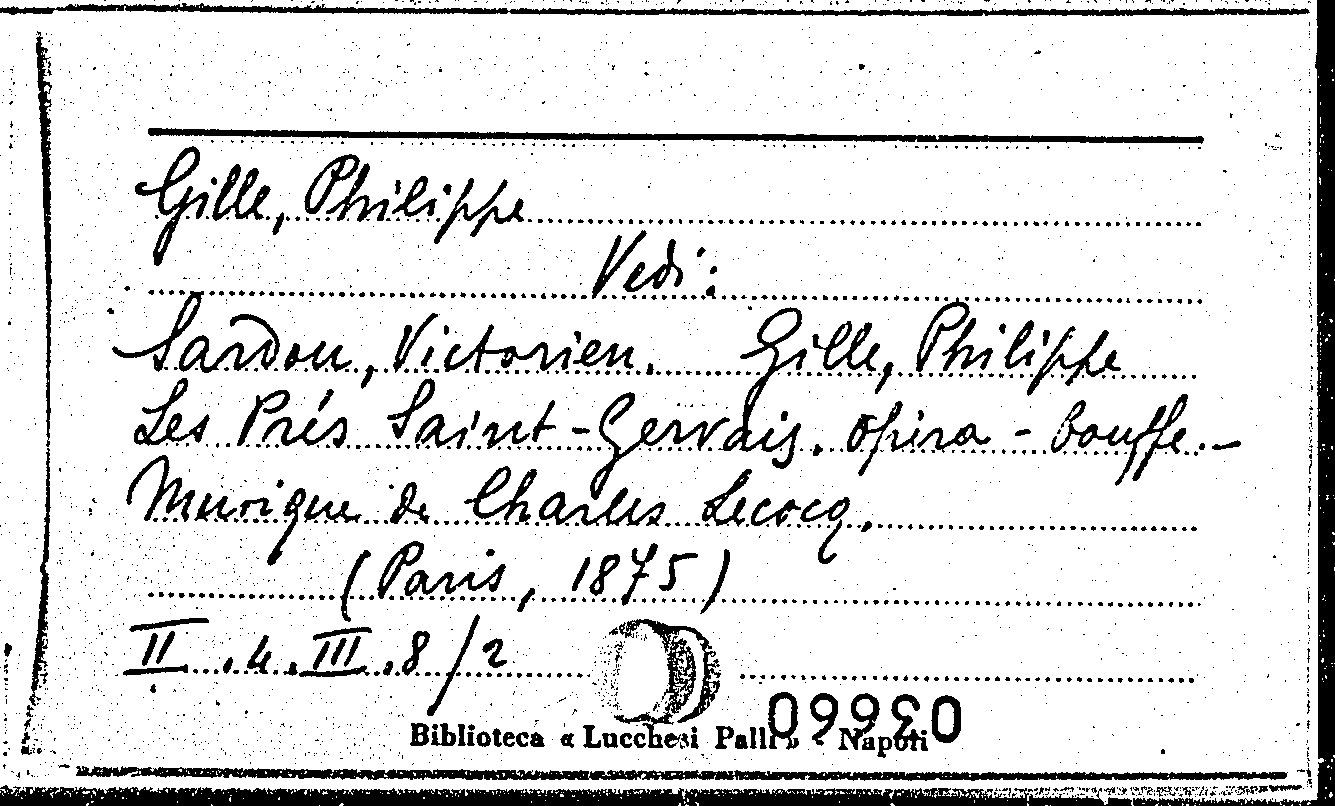 Gille, Philippe
Vedi:
Sardou, Victorien. Gille, Philippe
Les Prés Saint-Gervais. Opéra-bouffe.-
Musique de Charles Lecocq.
(Paris, 1875)
II.4.III.8/2
Biblioteca « Lucchesi Palli » - Napoli